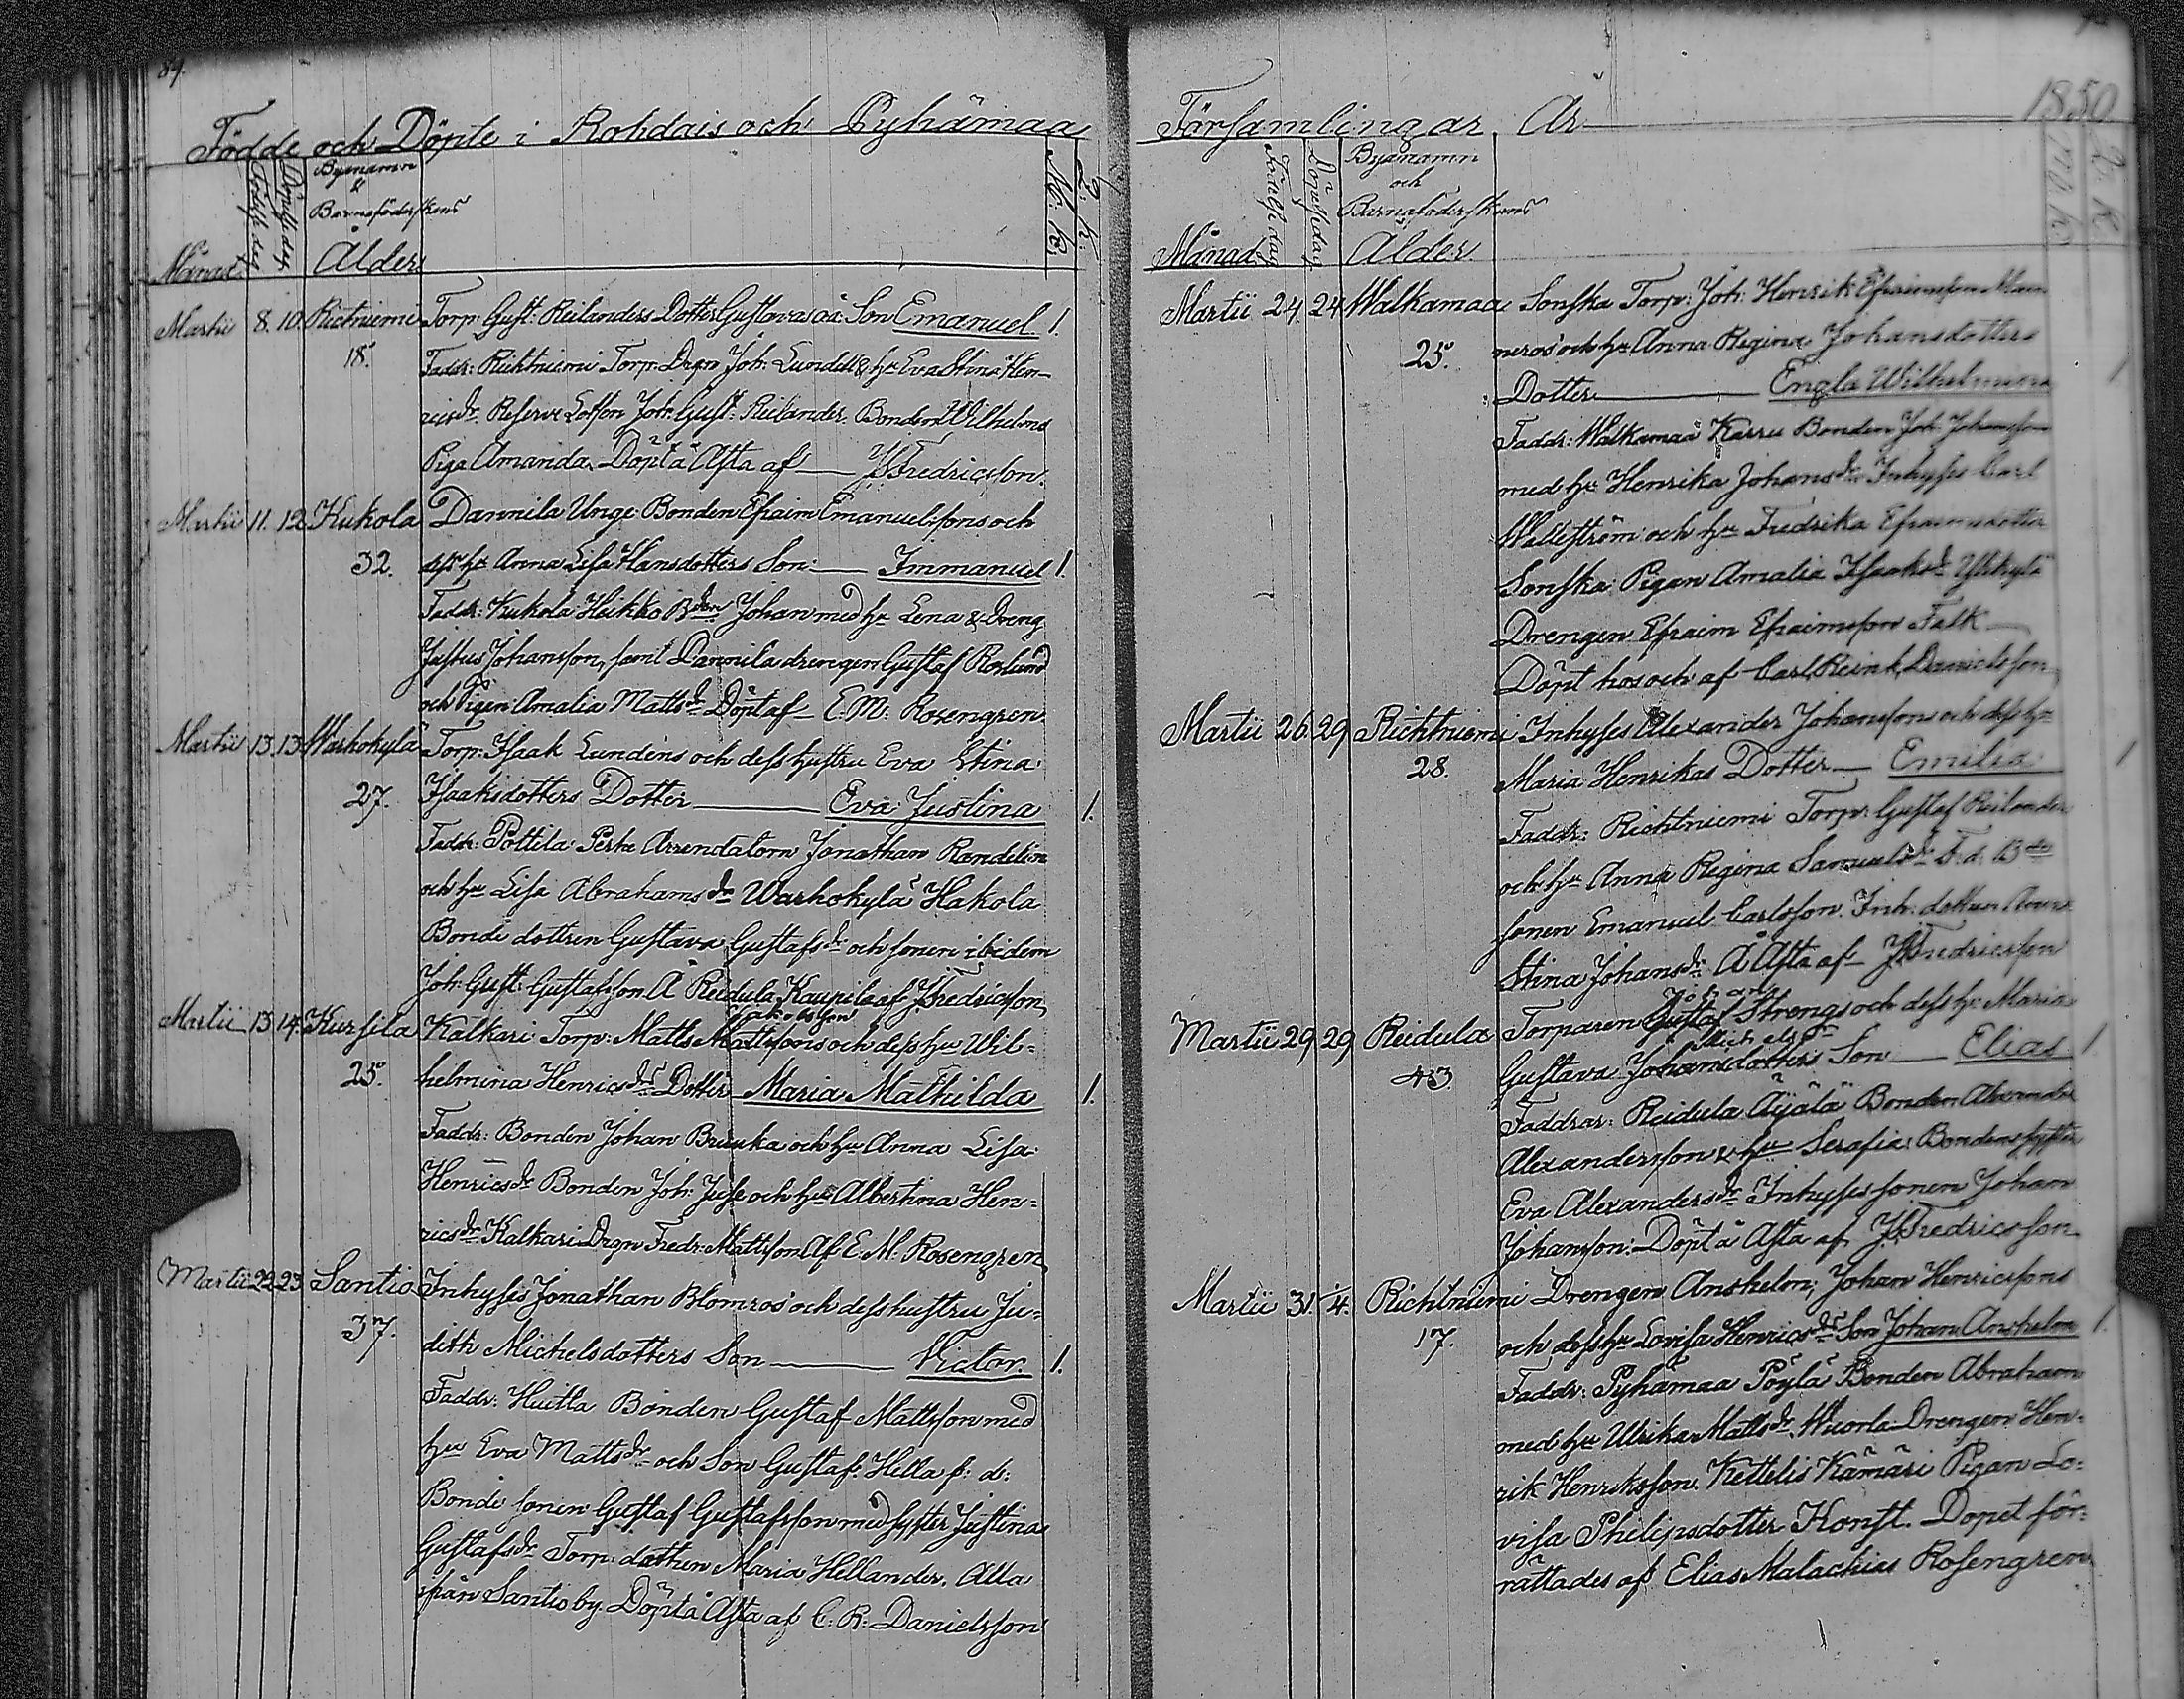 89.
Födde och Döpte i Rohdais och Pyhämaa
Månad
Födelse dag
Döpelse dag
Bynamn
&
Barnaföderskans
Ålder
M. k.
Q. k.
Martii 8. 10. Richtniemi Torp: Gust: Reilanders Dotter Gustavas oä: Son Emanuel 1.
18. Faddr: Richtniemi Torp. Drgn Joh: Lundell & hu Eva Stina Hen-
ricsdr. Reserv Lotsen Joh: Gust: Reilander. Bonden Wilhelms
Piga Amanda. Döpt å Afta af — JFredricsson.
Martii 11. 12 Kukola Dannila Unge Bonden Efraim Emanuelssons och
32. dess hu Anna Lisa Hansdotters Son: — Immanuel 1.
Faddr: Kukola Heikko Bden Johan med hu Lena & Dreng
Justus Johansson, samt Dannila drengen Gustaf Roslund
och Pigan Amalia Mattsdr Döpt af — E. M: Rosengren
Martii 13. 13 Warhokylä Torp: Isaak Lundéns och dess hustru Eva Stina
27. Isaaksdotters Dotter — Eva Justina 1.
Faddr: Pottila Perhe Arrendatorn Jonathan Randelin
och hu Lisa Abrahamsdr Warhokylä Hakola
Bonde dottren Gustava Gustafsdr och sonen ibidem
Joh: Gust: Gustafsson Å Reidula Kaupila af JFredricsson
Jakobsson
Martii 13 14. Kursila Kalkari Torp: Matts Mattssons och dess hu Wil-
25. helmina Henricsdrs Dotter Maria Mathilda 1.
Faddr: Bonden Johan Bruuka och hu Anna Lisa
Henricsdr Bonden Joh: Juse och hu Albertina Hen-
ricsdr Kalkari Drgn Fredr: Mattsson Af E. M. Rosengren
Martii 22 23 Santio Inhyses Jonathan Blomros och dess hustru Ju-
37. dith Michelsdotters Son — Victor. 1.
Faddr: Huitla Bonden Gustaf Mattsson med
hu Eva Mattsdr och Son Gustaf. Hella f: d:
Bonde sonen Gustaf Gustafsson med syster Justina
Gustafsdr Torp: dottren Maria Hellander. Alla
från Santio by. Döpt å Afta af C: R: Danielsson
Församlingar År 1850
Månad
Födelse dag
Döpelse dag
Bynamn
och
Barnaföderskans
Ålder
M. k.
Q. k.
Martii 24 24 Walkamaa Sonska Torp: Joh: Henrik Efraimsson Man
25. neros och hu Anna Regina Johansdotters
Dotter — Engla Wilhelmina 1
Faddr: Walkamaa Karru Bonden Joh: Johansson
med hu Henrika Johansdr Inhyses Carl
Walleström och hu Fredrika Efraimsdotter
Sonska Pigan Amalia Isaaksdr Ylikylä
Drengen Efraim Efraimsson Falk —
Döpt hos och af Carl Reinh. Danielsson
Martii 26 29 Richtniemi Inhyses Alexander Johanssons och dess hu
28. Maria Henrikas Dotter — Emilia 1
Faddr: Richtniemi Torp: Gustaf Reilander
och hu Anna Regina Samuelsdr F. d. Bde
sonen Emanuel Carlsson. Inh: dottren Anna
Stina Johansdr. Å Afta af JFredricsson
Johan
Martii 29 29 Reidula Torparen Gustaf Strengs och dess hu Maria
Michelsdr
43 Gustava Johansdotters Son — Elias 1
Faddrar: Reidula Äyälä Bonden Alexander
Alexandersson & hu Serafia: Bondens syster
Eva Alexandersdr Inhyses sonen Johan
Johansson: Döpt å Afta af JFredricsson
Martii 31. 1/4. Richtniemi Drengen Anshelm, Johan Henricssons
17. och dess hu Lovisa Henricsdrs Son Johan Anshelm 1.
Faddr: Pyhämaa Pöylä Bonden Abraham
med hu Ulrika Mattsdr. Wuorla Drengen Hen-
rik Henriksson. Kettelis Kämäri Pigan Lo-
visa Philipsdotter Konst. Dopet för-
rättades af Elias Malachias Rosengren